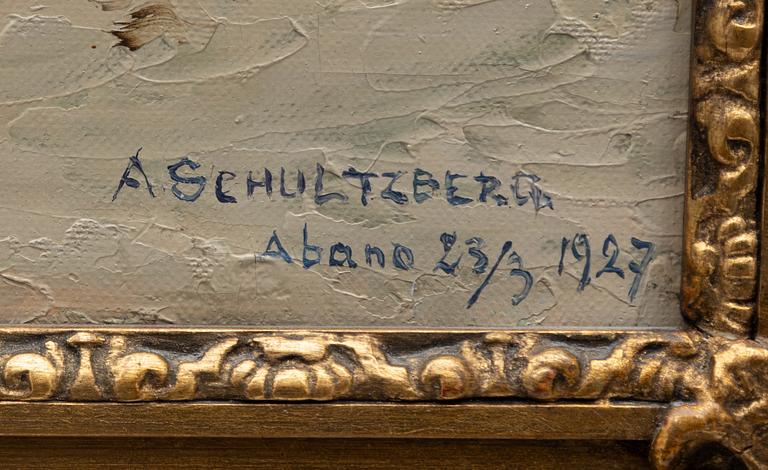 A. SCHULTZBERG.
Abano 23/3 1927